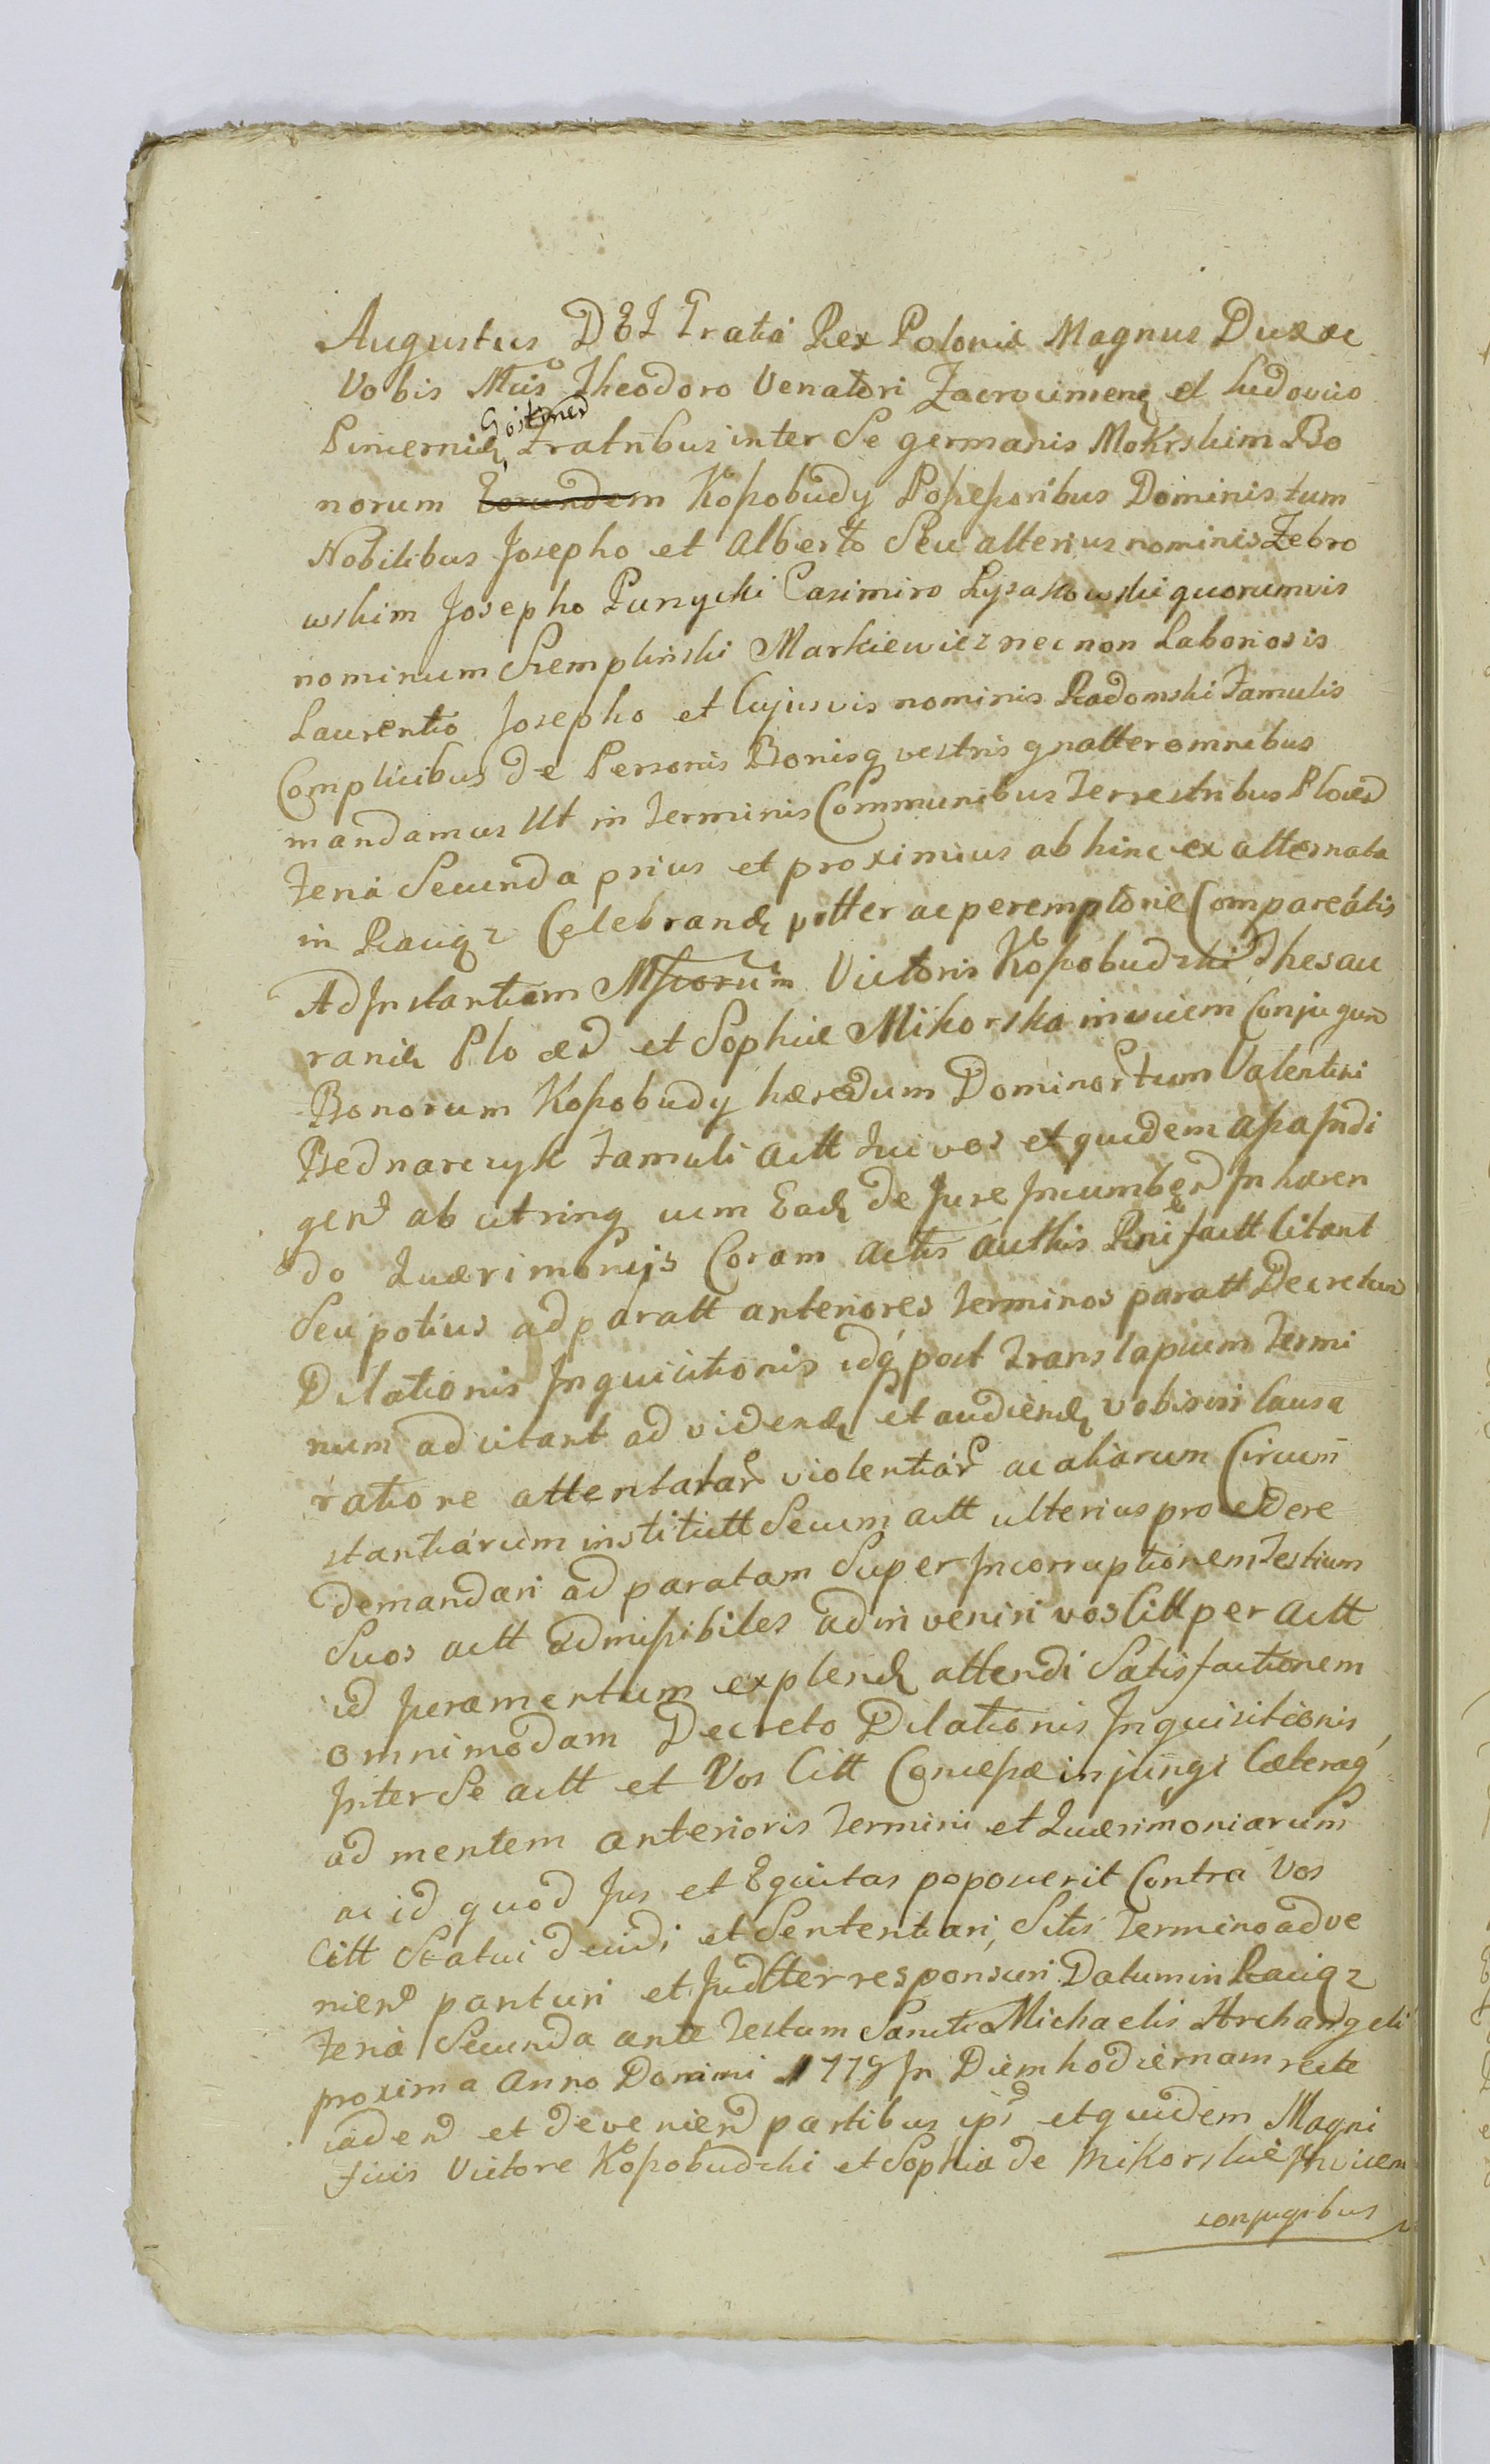 Augustus DEI Gratia Rex Poloniæ Magnus Dux &c
Vobis Mcis Theodoro Venatori Zacrocimen et Ludovico
Pincernidæ Gostinen Fratribus inter Se germanis Mokrskim Bo
norum Eorundem Kossobudy Possessoribus Dominis tum
Nobilibus Josepho et Alberto Seu alterius nominis Zebro
wskim Josepho Punycki Casimiro Lysakowski quorumvis
nominum Szemplinski Markiewicz nec non Laboriosis
Laurentio Josepho et Cujusvis nominis Radomski Famulis
Complicibus de Personis Bonisq vestris gnatter omnibus
mandamus Ut in Terminis Communibus Terrestribus Plocen
Feria Secunda prius et proximius abhinc ex alternata
in Raciąz Celebrand ptter ac peremptorie Compareatis
Ad Instantiam Mficorum Victoris Kossobudzki Thesau
rarii Plocen et Sophiæ Mikorska invicem Conjugum
Bonorum Kossobudy hæredum Dominor tum Valentini
Bednarczyk Famuli actt Qui vos et quidem
gen ab utrinq cum Ead de Jure Incumben Inhæren
do Quærimoniis Coram actis authis Pni factt Citant
Seu potius ad paratt anteriores Terminos paratt Decretum
Dilationis Inquisitionis idq post Translapsum Termi
num adcitant ad vidend et audiend vobis in Causa
ratione attentatar violentiar ac aliarum Circum
stantiarum institutt Secum actt ulterius procedere
demandari ad paratam Super Incorruptionem Testium
Suos actt admissibiles adinveniri vos Citt per actt
id Juramentum explend attendi Satisfactionem
omnimodam Decreto Dilationis Inquisitionis
Inter Se actt et Vos Citt Concessæ injungi Cæteraq
ad mentem anterioris Termini et Quærimoniarum
ac id quod Jus et Equitas poposcerit Contra Vos
Citt Statui decidi et Sententiari, Sitis Termino adve
nien parituri et Judtter responsuri Datum in Raciąz
Feria Secunda ante Festum Sancti Michaelis Archangeli
proxima Anno Domini In Diem hodiernam recte
caden et devenien partibus ipis et quidem Magni
ficis Victore Kossobudzki et Sophia de Mikorskie Invicem
conjugibus